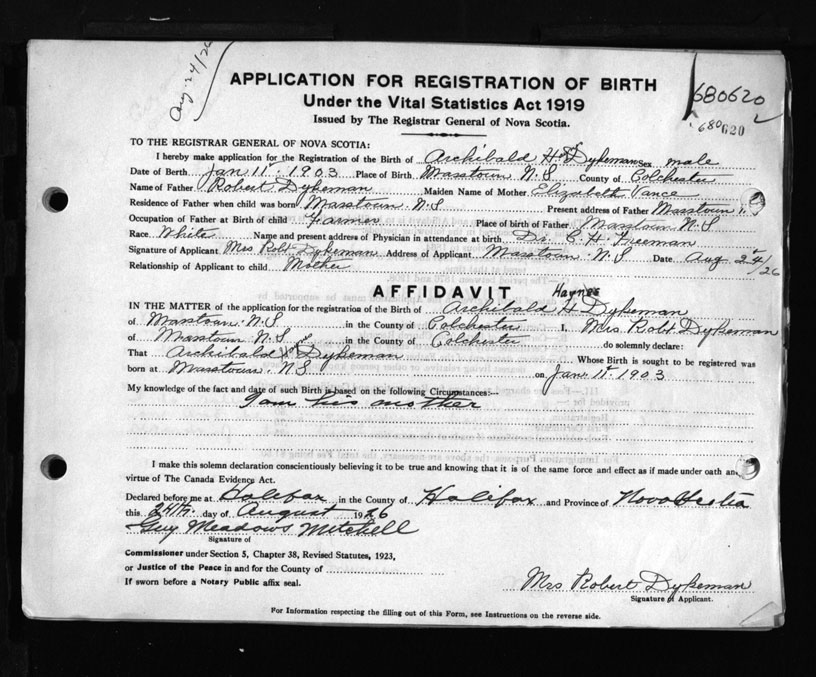 Aug 24/26
APPLICATION FOR REGISTRATION OF BIRTH
680620
Under the Vital Statistics Act 1919
Issued by The Registrar General of Nova Scotia.
680620
TO THE REGISTRAR GENERAL OF NOVA SCOTIA:
I hereby make application for the Registration of the Birth of Archibald H Dykeman Sex male
Date of Birth Jan 11 1903 Place of Birth Masstown N.S County of Colchester
Name of Father Robert Dykeman Maiden Name of Mother Elizabeth Vance
Residence of Father when child was born Masstown N.S Present address of Father Masstown
Occupation of Father at Birth of child Farmer Place of birth of Father Masstown N.S
Race White Name and present address of Physician in attendance at birth Dr. C. H. Freeman
Signature of Applicant Mrs Robt Dykeman Address of Applicant Masstown N.S Date Aug 24/26
Relationship of Applicant to child Mother
AFFIDAVIT
Haynes
IN THE MATTER of the application for the registration of the Birth of Archibald H Dykeman
of Masstown N.S in the County of Colchester I, Mrs Robt Dykeman
of Masstown N.S in the County of Colchester do solemnly declare:
That Archibald H Dykeman Whose Birth is sought to be registered was
born at Masstown N.S. on Jan. 11 1903
My knowledge of the fact and date of such Birth is based on the following Circumstances:--
I am his mother
I make this solemn declaration conscientiously believing it to be true and knowing that it is of the same force and effect as if made under oath an
virtue of The Canada Evidence Act.
Declared before me at Halifax in the County of Halifax and Province of Nova Scotia
this 24th day of August 1926
Guy Meadows Mitchell
Signature of
Commissioner under Section 5, Chapter 38, Revised Statutes, 1923,
or Justice of the Peace in and for the County of
If sworn before a Notary Public affix seal.
Mrs Robert Dykeman
Signature of Applicant.
For Information respecting the filling out of this Form, see Instructions on the reverse side.